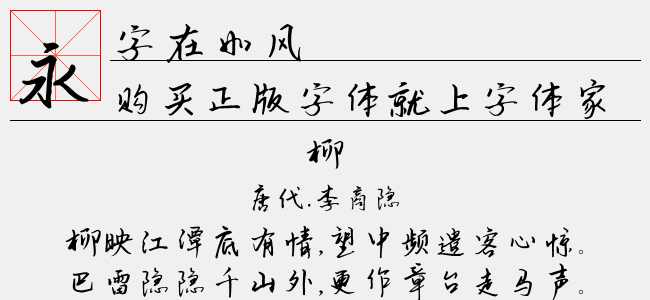 永
字在如风
购买正版字体就上字体家
柳
唐代.李商隐
柳映江潭底有情,望中频遣客心惊。
巴雷隐隐千山外,更作章台走马声。